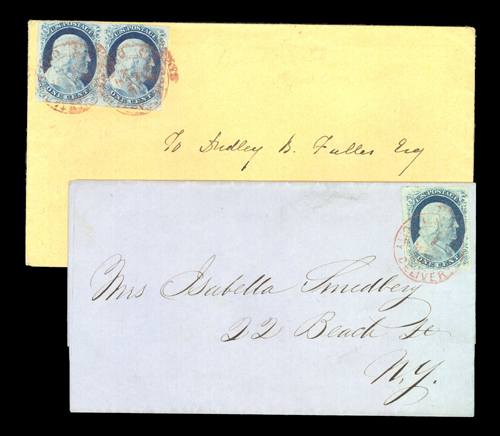 U.S. POSTAGE U.S. POSTAGE
ONE CENT ONE CENT
To Dudley B. Fuller Esq
U.S. POSTAGE
ONE CENT
DELIVER
Mrs Isabella Smedbery
22 Beach St
N.Y.